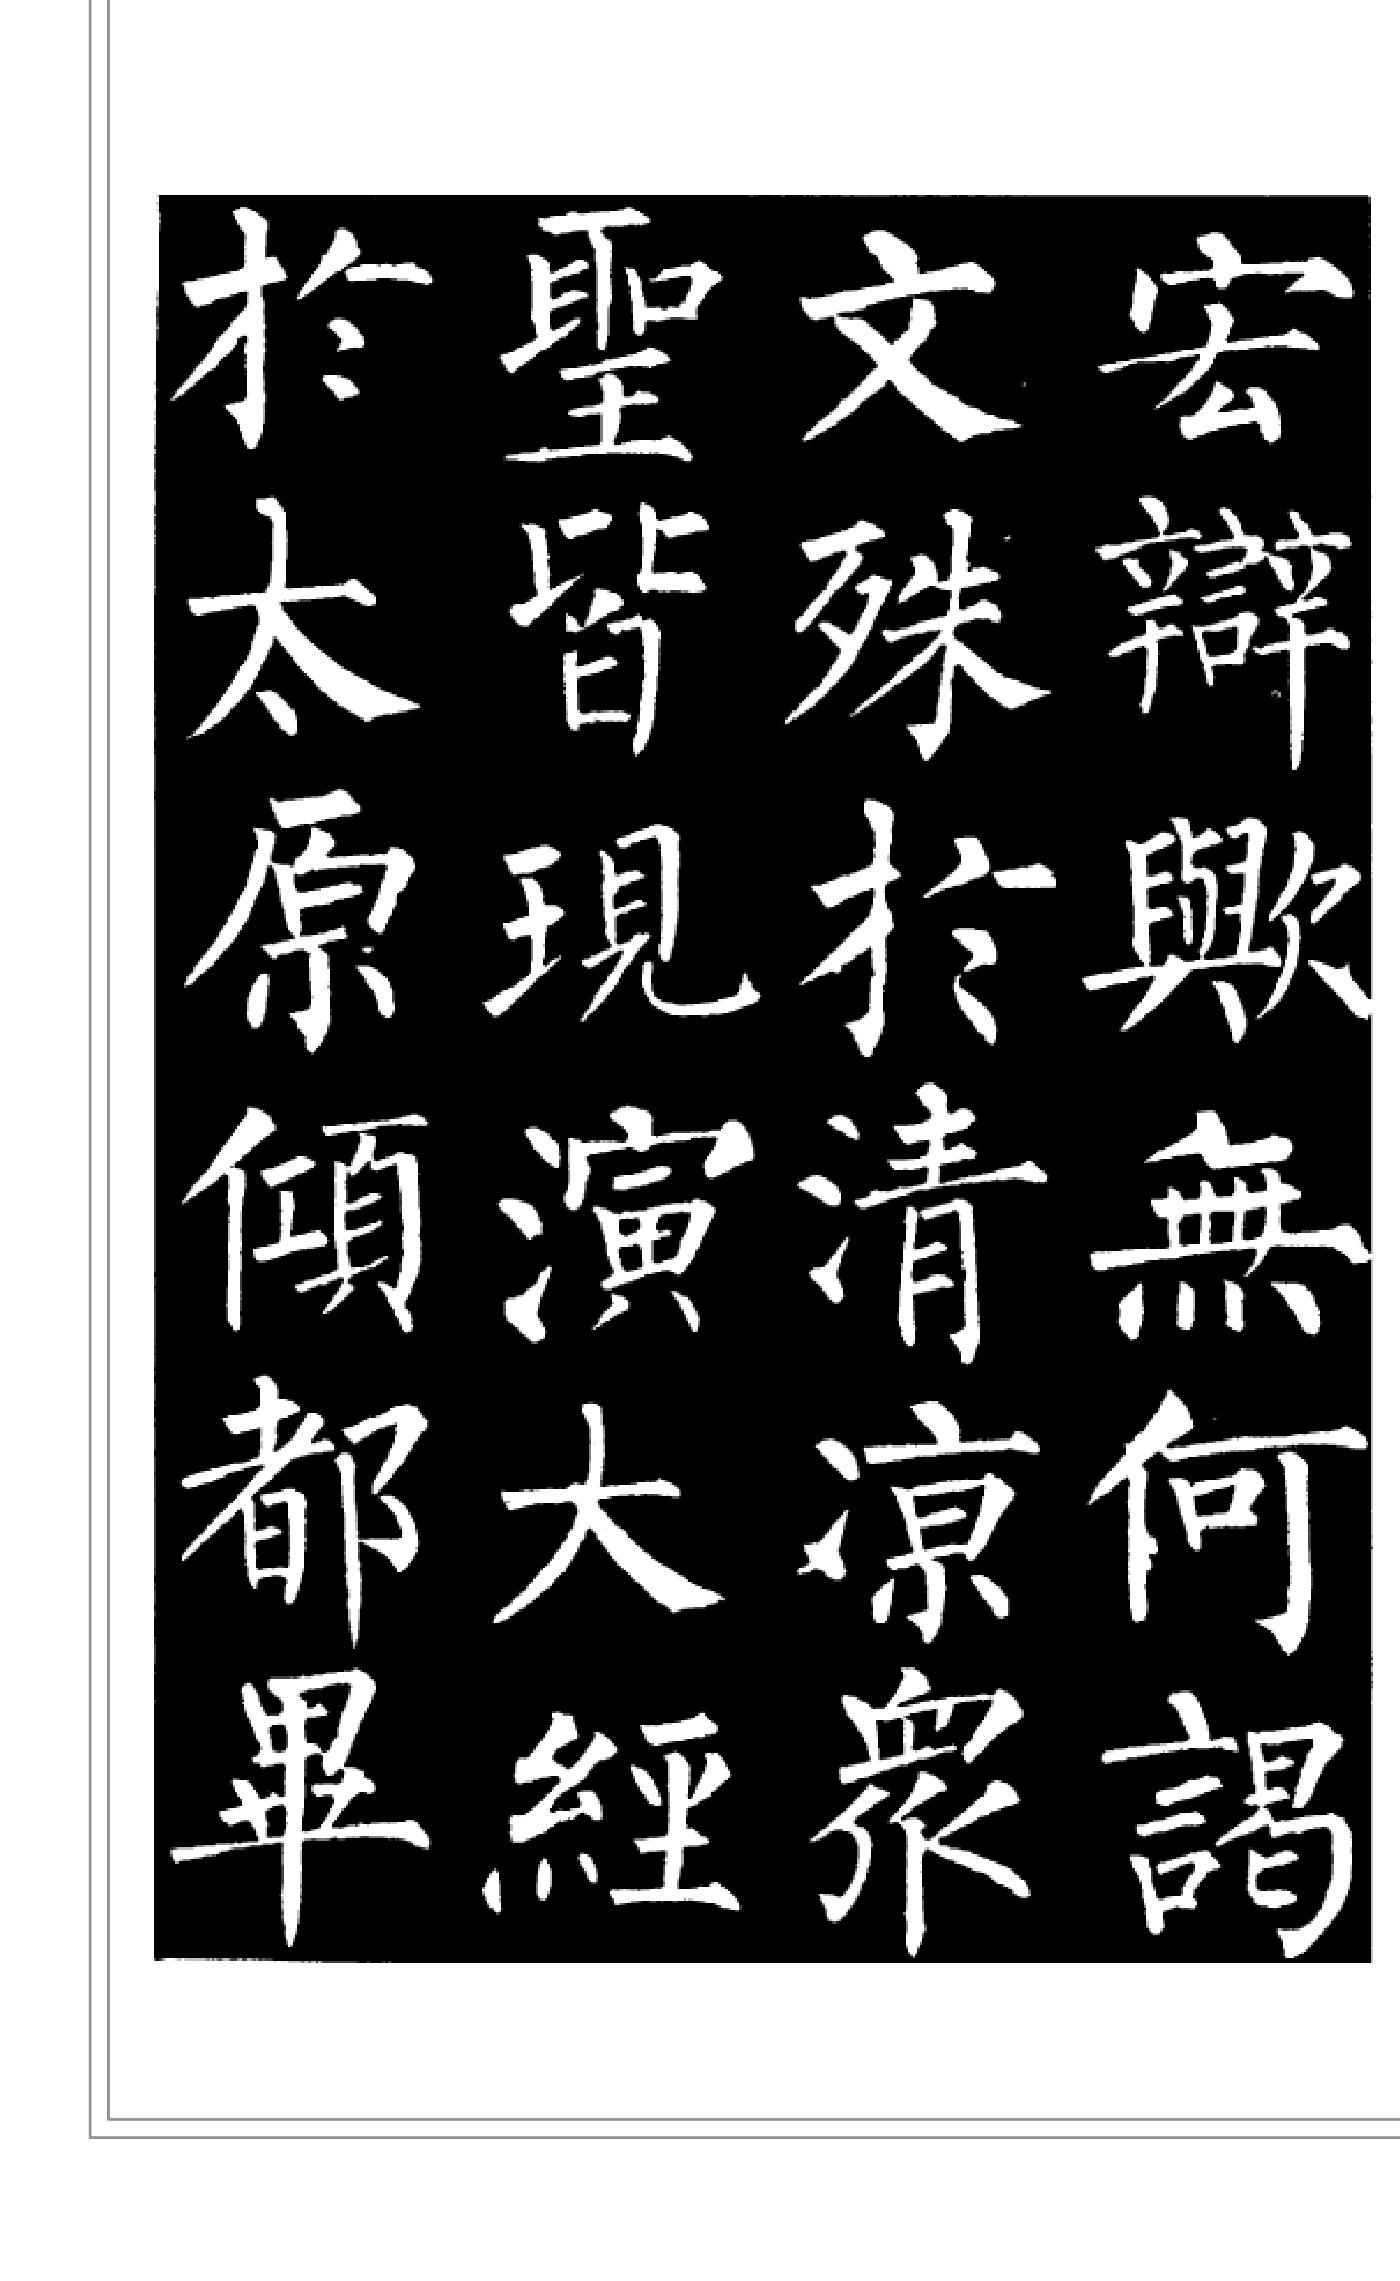 宏辯歟無何謁
文殊於清涼眾
聖皆現演大經
於太原傾都畢